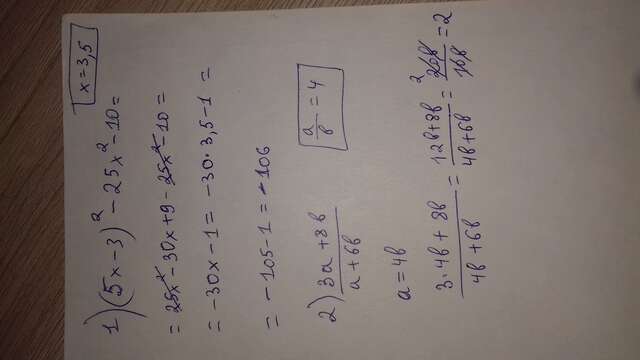 x = 3,5
1) (5x - 3)² - 25x² - 10 =
= 25x² - 30x + 9 - 25x² - 10 =
= -30x - 1 = -30·3,5 - 1 =
= -105 - 1 = -106
2) (3a + 8b)/(a + 6b)
a/b = 4
a = 4b
(3·4b + 8b)/(4b + 6b) = (12b + 8b)/(4b + 6b) = ²20b/10b = 2